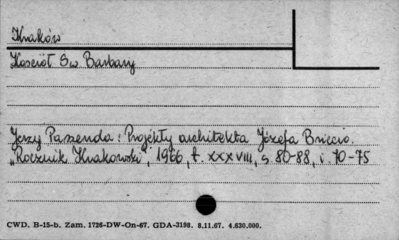 Kraków
Kościół Św. Barbary
Jerzy Paszenda: Projekty architekta Józefa Briccio.
"Rocznik Krakowski", 1966, t. XXXVIII, s. 80-88, i. 70-75
CWD. B-15-b. Zam. 1726-DW-On-67. GDA-3198. 8.11.67. 4.630.000.